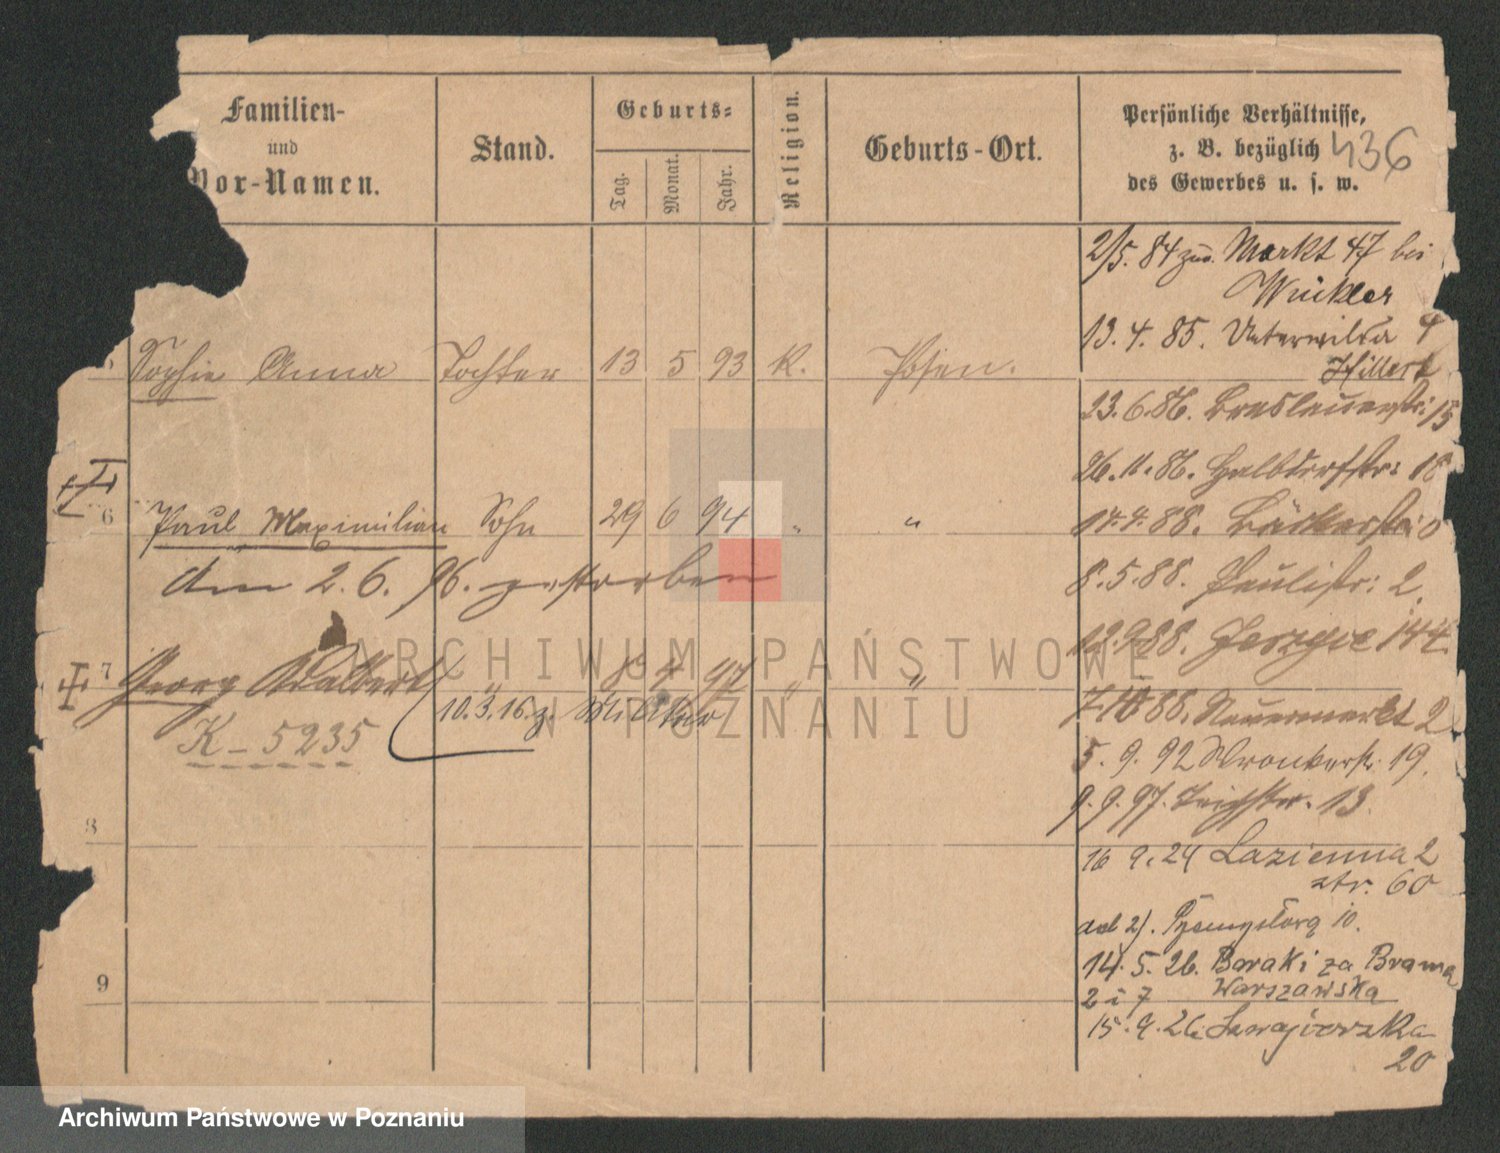 Familien-
und
Vor-Namen.
Stand.
Geburts-
Tag.
Monat.
Jahr.
Religion.
Geburts-Ort.
Persönliche Verhältnisse,
z. B. bezüglich
des Gewerbes u. s. w.
436
2/5. 84 zu. Markt 47 bei
Winkler
13. 4. 85. Unterwilda 4
Hillert
Sophie Anna Tochter 13 5 93 K. Posen.
23. 6. 86. Breslauerstr: 15
26. 11. 86. Halbdorfstr: 18
6 Paul Maximilian Sohn 29 6 94 " "
14. 4. 88. Bäckerstr:
am 2. 6. 96. gestorben
8. 5. 88. Paulistr: 2.
12. 9. 88. Jerzyce 144.
7 Georg Adalbert " 8 4 97 " "
10. 3. 16. z. Militär
7 10 88. Neuermarkt 2
K - 5235
5. 9. 92 Wronkerstr. 19.
9. 9. 97. Teichstr. 13.
8
16 9. 24 Lazienna 2
str. 60
ad 2).
14. 5. 26. Baraki za Bramą
Warszawską
2 i 7
9
15. 9. 26.
20
ARCHIWUM PAŃSTWOWE
W POZNANIU
Archiwum Państwowe w Poznaniu